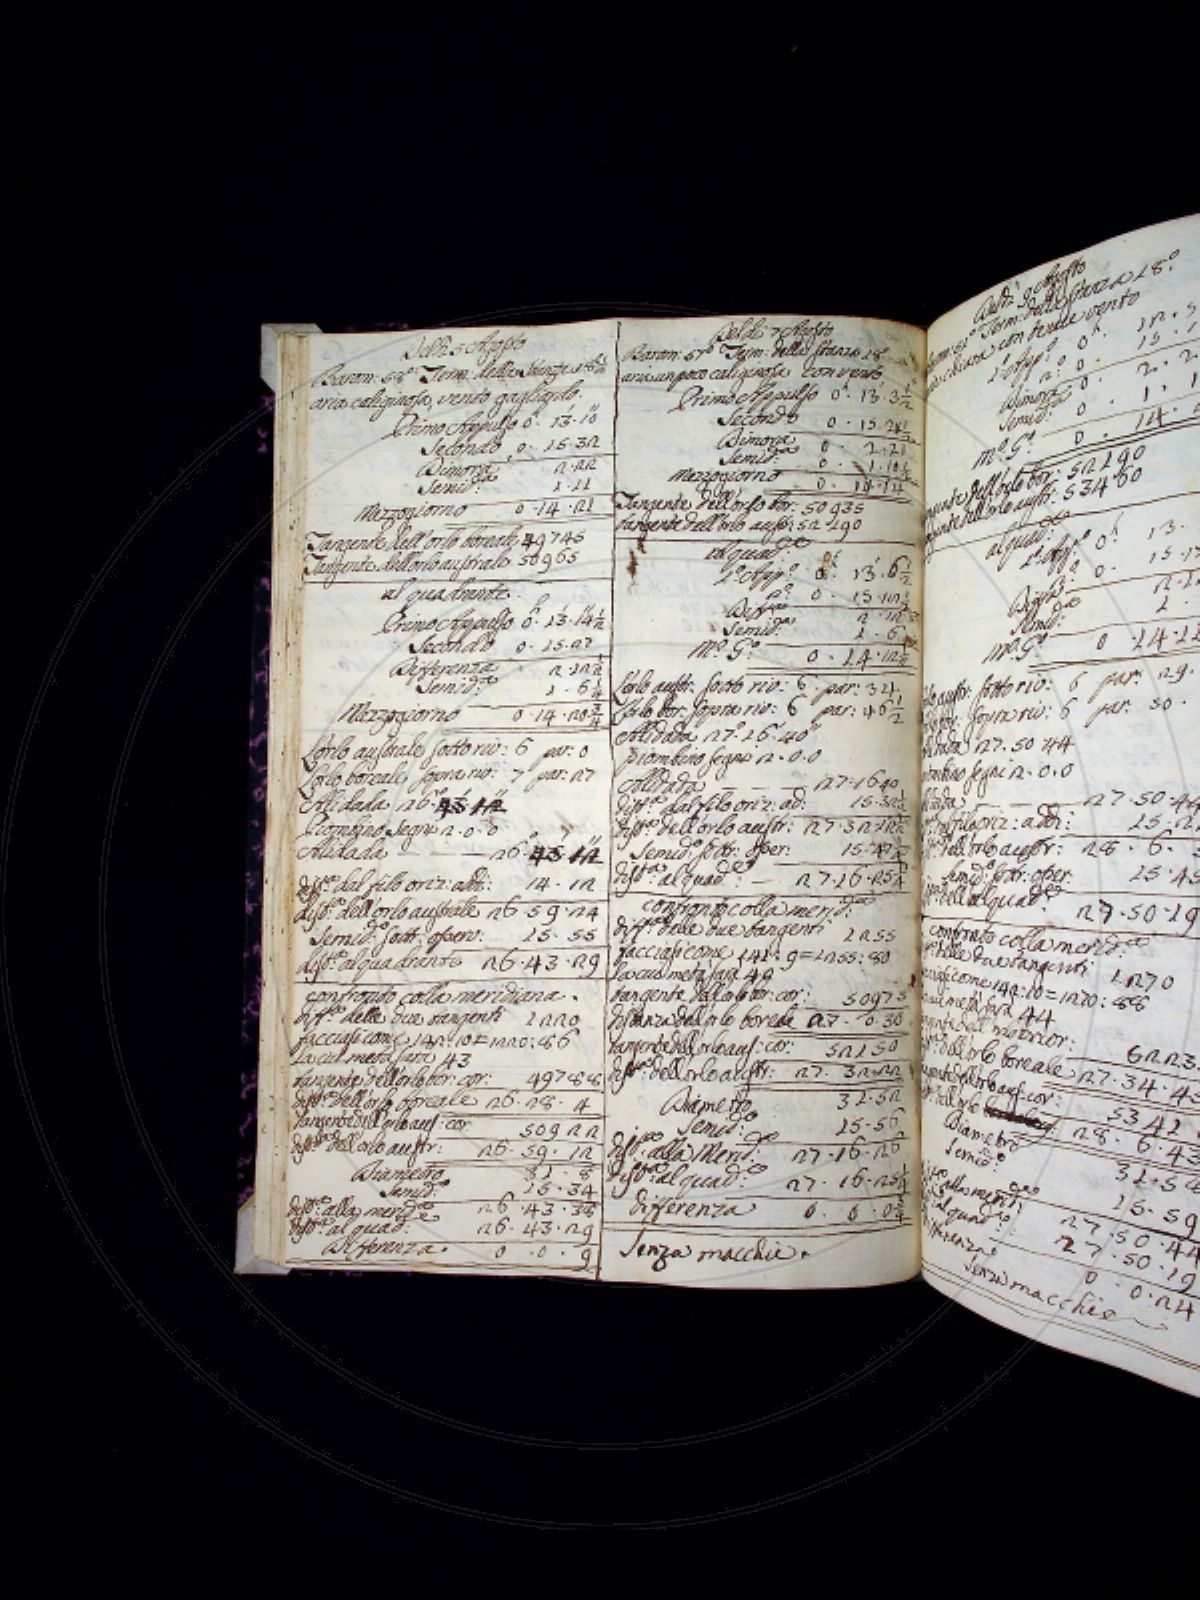 Delli 5 Agosto
Barom: 58° Term. della Stanza 18°½
aria caliginosa, vento gagliardo.
Primo Appulso 0. 13. 10
Secondo 0. 15. 32
Dimora 2. 22
Semid. 1. 11
Mezzogiorno 0. 14. 21
Tangente dell'orlo boreale 49745
Tangente dell'orlo australe 50965
al quadrante
Primo Appulso 0. 13. 14½
Secondo 0. 15. 27
Differenza 2. 12½
Semid. 1. 6¼
Mezzogiorno 0. 14. 20¾
L'orlo australe sotto riv: 6 par: 0
L'orlo boreale sopra riv: 7 par: 27
Alidada 26° 43 12
Piombino segni 2. 0. 0
Alidada 26. 43. 12
dist. dal filo oriz: add: 14. 12
dist. dell'orlo australe 26. 59. 24
Semid. sott: osserv: 15. 55
dist. al quadrante 26. 43. 29
confronto colla meridiana.
diff. delle due tangenti 1220
facciasi come 142: 10 = 1220: 86
la cui metà sarà 43
tangente dell'orlo bor: cor: 49788
dist. dell'orlo boreale 26. 28. 4
tangente dell'orlo aust: cor: 50922
dist. dell'orlo austr: 26. 59. 12
Diametro 31. 8
Semid. 15. 34
dist. alla merid. 26. 43. 38
dist. al quad. 26. 43. 29
Differenza. 0. 0. 9
Deldì 7 Agosto
Barom: 57° Term: della stanza 18°
aria un poco caliginosa con vento
Primo Appulso 0. 13. 3½
Secondo 0. 15. 24½
Dimora 0 2. 21
Semid. 0. 1. 10½
Mezzogiorno 0. 14. 14
Tangente dell'orlo bor: 50935
tangente dell'orlo austr: 52190
al quad.
1° App. 0. 13. 6½
2° 0. 15.
Diff. 2. 12
Semid. 1. 6
M° G° 0. 14. 12½
L'orlo austr: sotto riv: 6 par: 34.
L'orlo bor: sopra riv: 6 par: 46½
Alidada 27° 16' 40"
piombino segni 2. 0. 0
Alidada 27. 16 40
dist. dal filo oriz: ad: 15. 32½
dist. dell'orlo austr: 27. 32. 12½
Semid. sottr: oser: 15. 47¼
dist. al quad: 27. 16. 25¼
confronto colla merid.
diff. delle due tangenti 1255
facciasi come 141: 9 = 1255: 80
la cui metà sarà 40
tangente dell'orlo bor: cor: 50975
distanza dell'orlo boreale 27. 0. 30
tangente dell'orlo aus: cor: 52150
dist. dell'orlo austr: 27. 32. 22
Diametro 31. 52
Semid. 15. 56
dist. alla Merid. 27. 16. 26
dist. al quad: 27. 16. 25¼
differenza 0. 0. 0¾
Senza macchie.
Deldì 9 Agosto
Term: della stanza 18°.
chiara con tenue vento
1° App. 0. 12. 5
2: 0. 15
Dimora 0. 2. 2
Semid. 0. 1. 1
M° G° 0. 14.
tangente dell'orlo bor: 52190
tangente dell'orlo austr: 53460
al quad.
1° App. 0. 13.
2° 0. 15. 1
Semid. 1.
M° G° 0 14. 1
austr: sotto riv: 6 par: 29.
sopra riv: 6 par: 30.
27. 50 44
piombino segni 2. 0. 0
27. 50. 44
filo oriz: add: 15. 2
dell'orlo austr: 28. 6. 3
Semid. sottr. oser: 15. 45
al quad. 27. 50. 19
confronto colla merid.
delle due tangenti 1270
facciasi come 142: 10 = 1270: 88
metà sarà 44
dell'orlo boreale 27. 34. 4
aust. cor: 5341
28. 6. 43
Diametro 31. 54
Semid. 15. 59
alla merid. 27. 50. 44
al quad. 27. 50. 19
0. 0. 24
Senza macchie